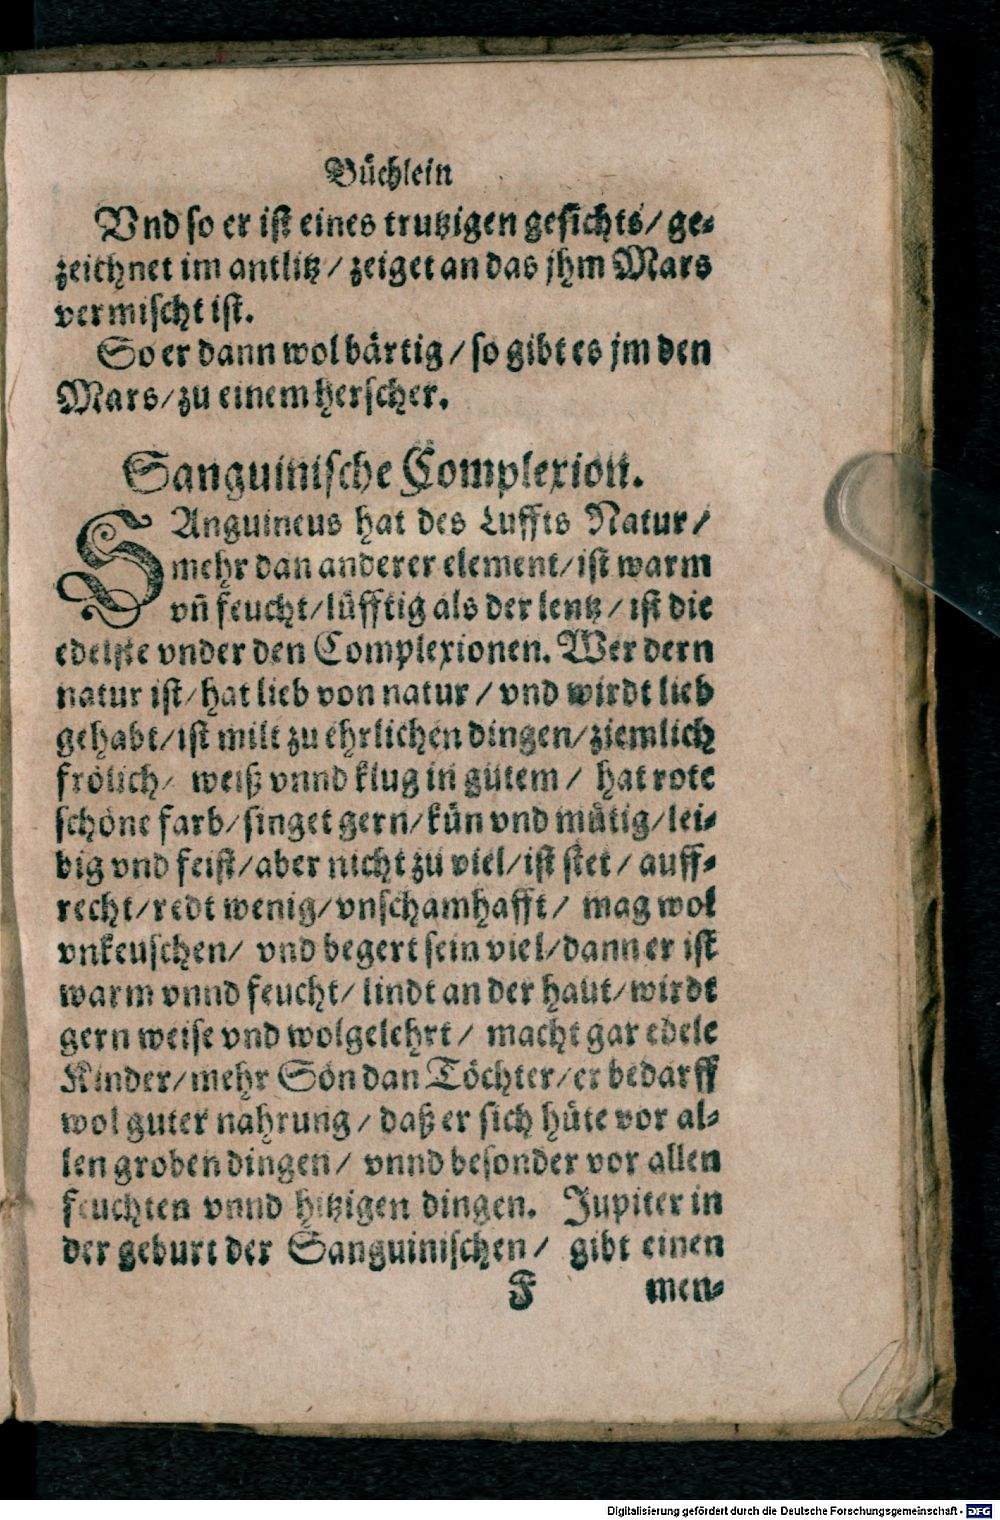 Büchlein
Vnd so er ist eines trutzigen gesichts/ ge-
zeichnet im antlitz/ zeiget an das jhm Mars
vermischt ist.
So er dann wol bärtig/ so gibt es jm den
Mars/ zu einem herscher.
Sanguinische Complexion.
SAnguineus hat des Luffts Natur/
mehr dan anderer element/ ist warm
vñ feucht/ lüfftig als der lentz/ ist die
edelste vnder den Complexionen. Wer dern
natur ist/ hat lieb von natur/ vnd wirdt lieb
gehabt/ ist milt zu ehrlichen dingen/ ziemlich
frölich/ weiß vnnd klug in gůtem/ hat rote
schöne farb/ singet gern/ kün vnd mütig/ lei-
big vnd feist/ aber nicht zu viel/ ist stet/ auff-
recht/ redt wenig/ vnschamhafft/ mag wol
vnkeuschen/ vnd begert sein viel/ dann er ist
warm vnnd feucht/ lindt an der haut/ wirdt
gern weise vnd wolgelehrt/ macht gar edele
Kinder/ mehr Sön dan Töchter/ er bedarff
wol guter nahrung/ daß er sich hüte vor al-
len groben dingen/ vnnd besonder vor allen
feuchten vnnd hitzigen dingen. Jupiter in
der geburt der Sanguinischen/ gibt einen
F men-
Digitalisierung gefördert durch die Deutsche Forschungsgemeinschaft - DFG